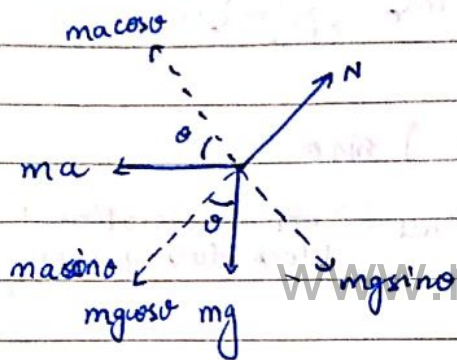 macosθ
N
θ
ma
θ
masinθ
mgcosθ
mg
mgsinθ
www.